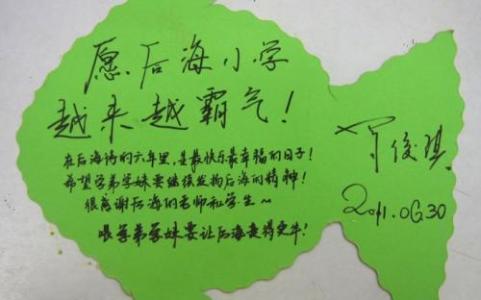 愿后海小学
越来越霸气！
在后海待的六年里,是最快乐最幸福的日子！
希望学弟学妹要继续发扬后海的精神！
很感谢后海的老师和学生～
学弟学妹要让后海变得更牛！
俊琪
2011.06.30